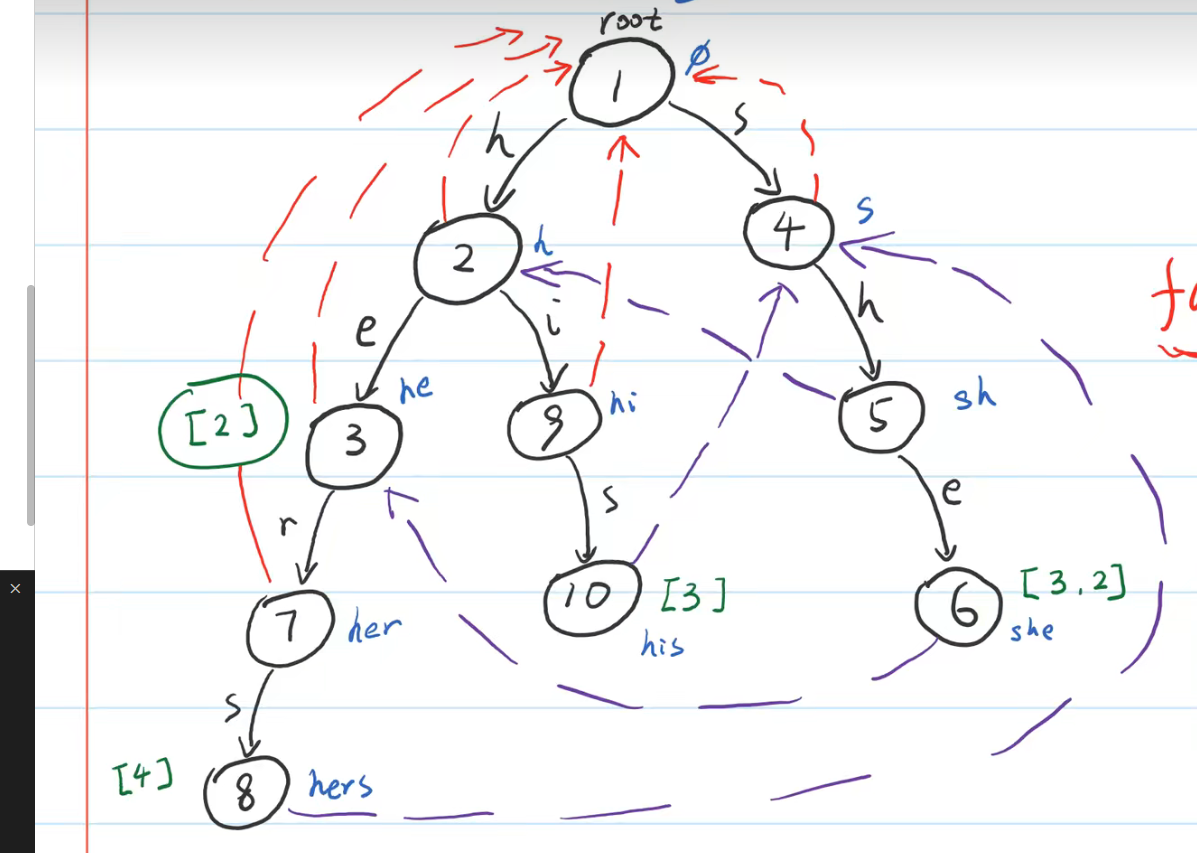 root
1
ø
h
s
2
h
4
s
e
i
h
fa
[2]
3
he
9
hi
5
sh
r
s
e
7
her
10
[3]
his
6
[3,2]
she
s
[4]
8
hers